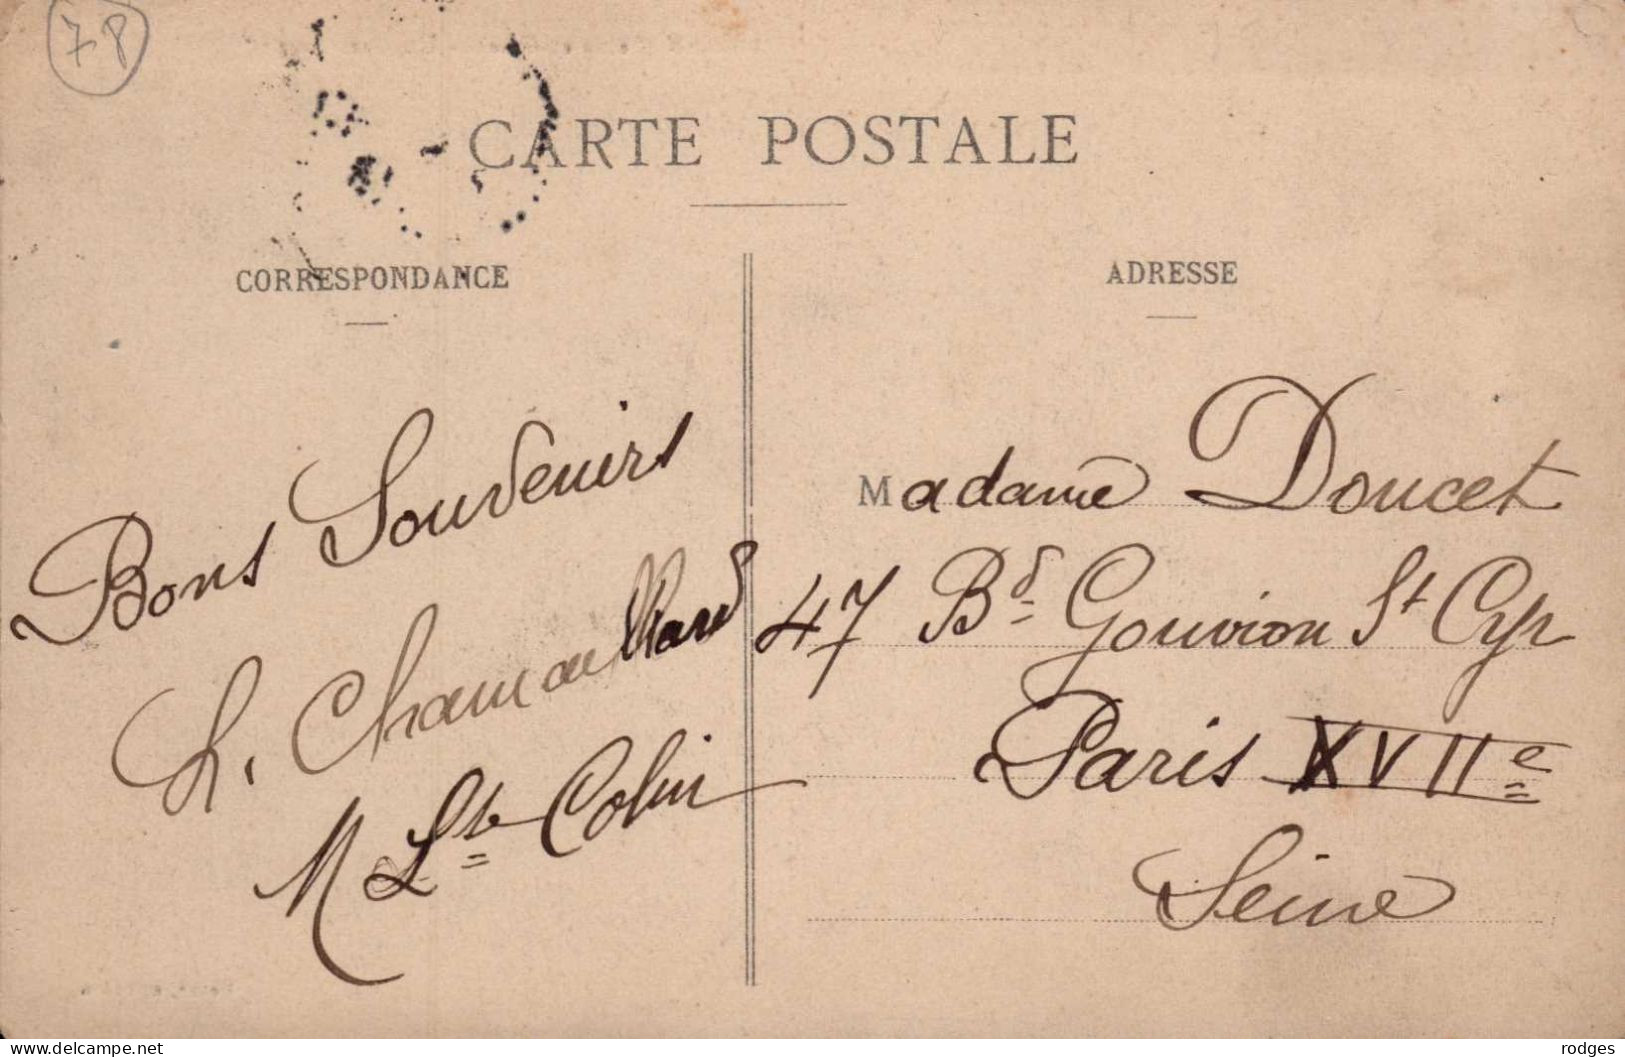 78
CARTE POSTALE
CORRESPONDANCE
ADRESSE
Bons Souvenirs
L. Chamaillard
M Lte Colin
Madame Doucet
47 Bd Gouvion St Cyr
Paris XVIIe
Seine
delcampe.net
rodges